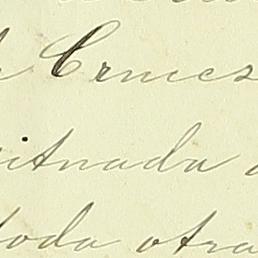 Cruces
situada
toda otra